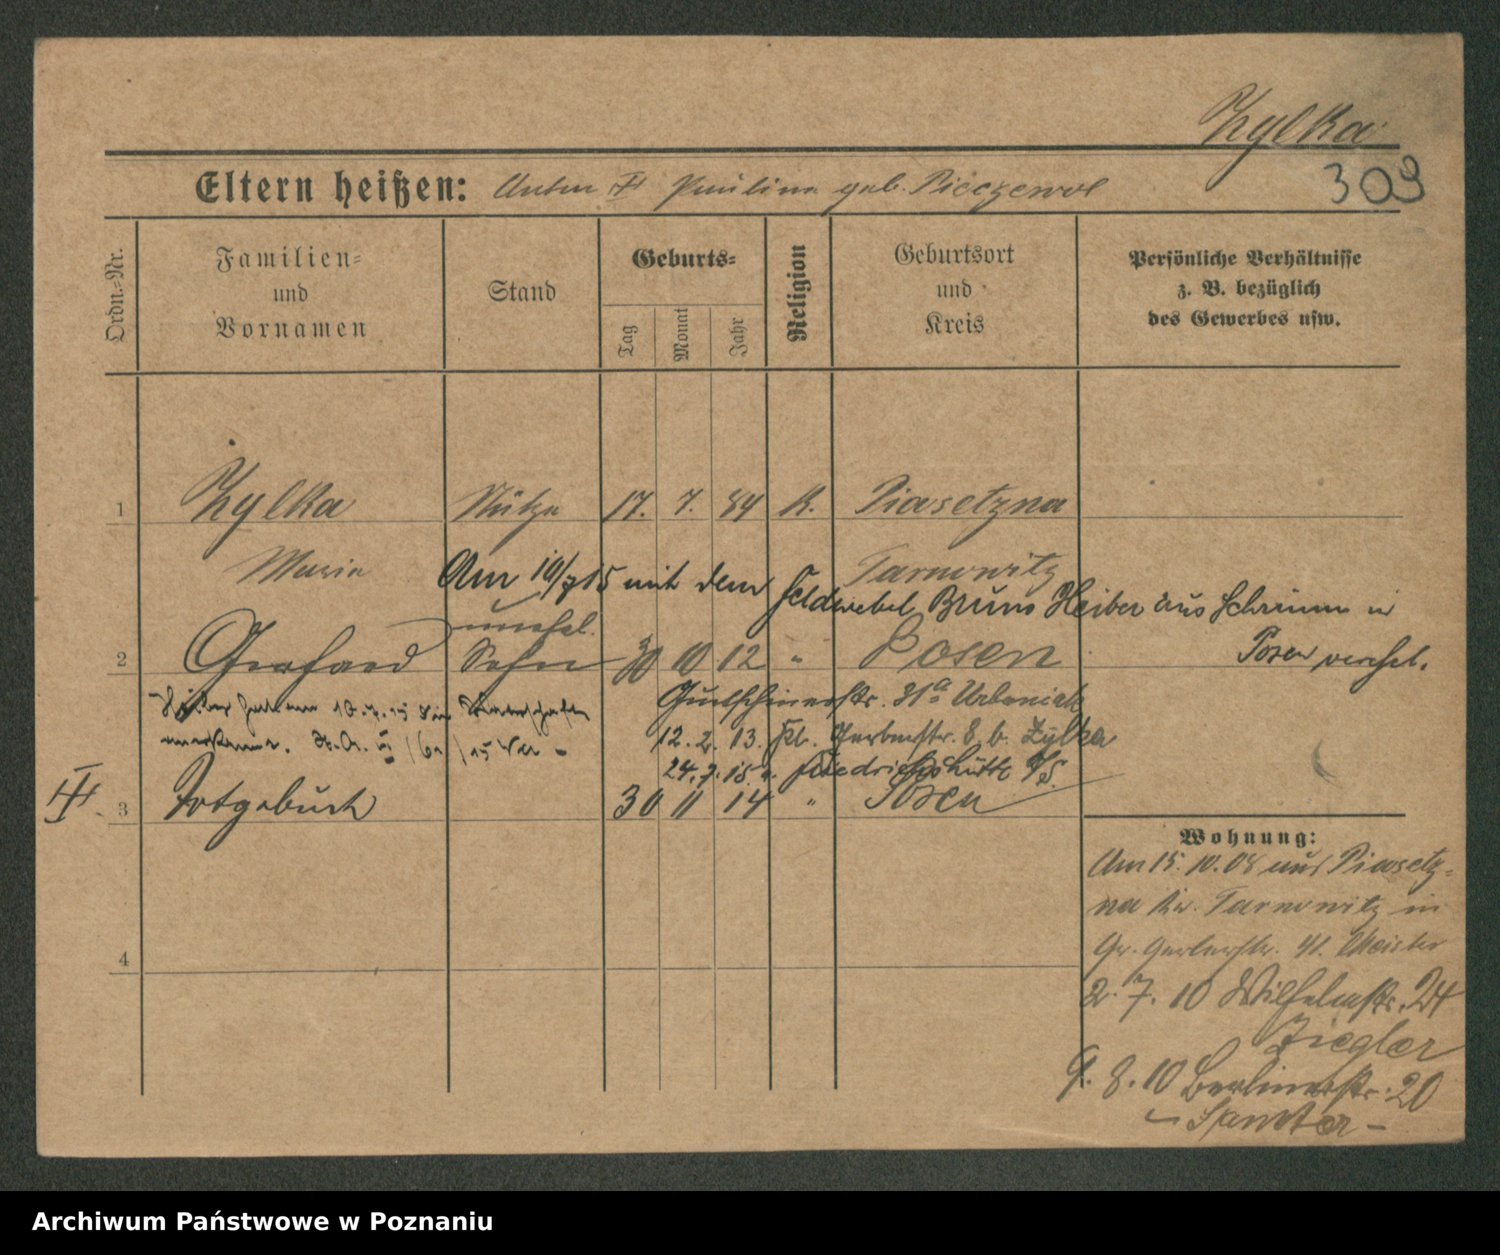 Zylka
309
Eltern heißen: Anton ♰ Paulina geb. Pieczewol
Ordn.-Nr.
Familien-
und
Vornamen
Stand
Geburts-
Tag
Monat
Jahr
Religion
Geburtsort
und
Kreis
Persönliche Verhältnisse
z. B. bezüglich
des Gewerbes usw.
1 Zylka Stütze 17. 7. 84 K. Piasetzna
Maria Tarnowitz
Am 10/7 15 mit dem Feldwebel Bruno Heiber aus Schrimm in
Posen verehel.
unehel.
2 Gerhard Sohn 30 10 12 " Posen
Heiber hat am 10.7.15 die Vaterschaft
anerkannt. /15
31a Urbaniak
12. 2. 13. Kl. Gerberstr. 8 b. Zylka
24. 7. 15 n. Friedrichshütte O/S.
3 Totgeburt 30 11 14 " Posen
4
Wohnung:
Am 15. 10. 08 aus Piasetz-
na Kr. Tarnowitz in
Gr. Gerberstr. 41.
2. 7. 10 Wilhelmstr. 24
Ziegler
9. 8. 10 Berlinerstr. 20
– Samter –
Archiwum Państwowe w Poznaniu